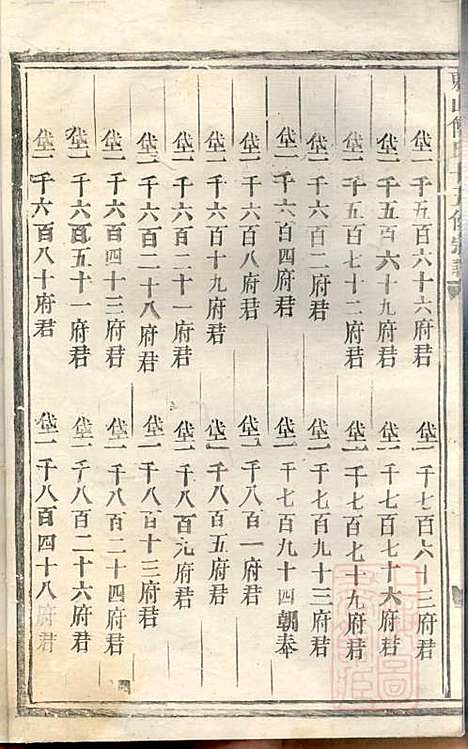 垡一千五百六十六府君
垡一千五百六十九府君
垡一千五百七十二府君
垡一千六百二府君
垡一千六百四府君
垡一千六百八府君
垡一千六百十九府君
垡一千六百二十一府君
垡一千六百二十八府君
垡一千六百四十三府君
垡一千六百五十一府君
垡一千六百八十府君
垡一千七百六十三府君
垡一千七百七十六府君
垡一千七百七十九府君
垡一千七百九十三府君
垡一千七百九十四朝奉
垡一千八百一府君
垡一千八百五府君
垡一千八百九府君
垡一千八百十三府君
垡一千八百二十四府君
垡一千八百二十六府君
垡一千八百四十八府君